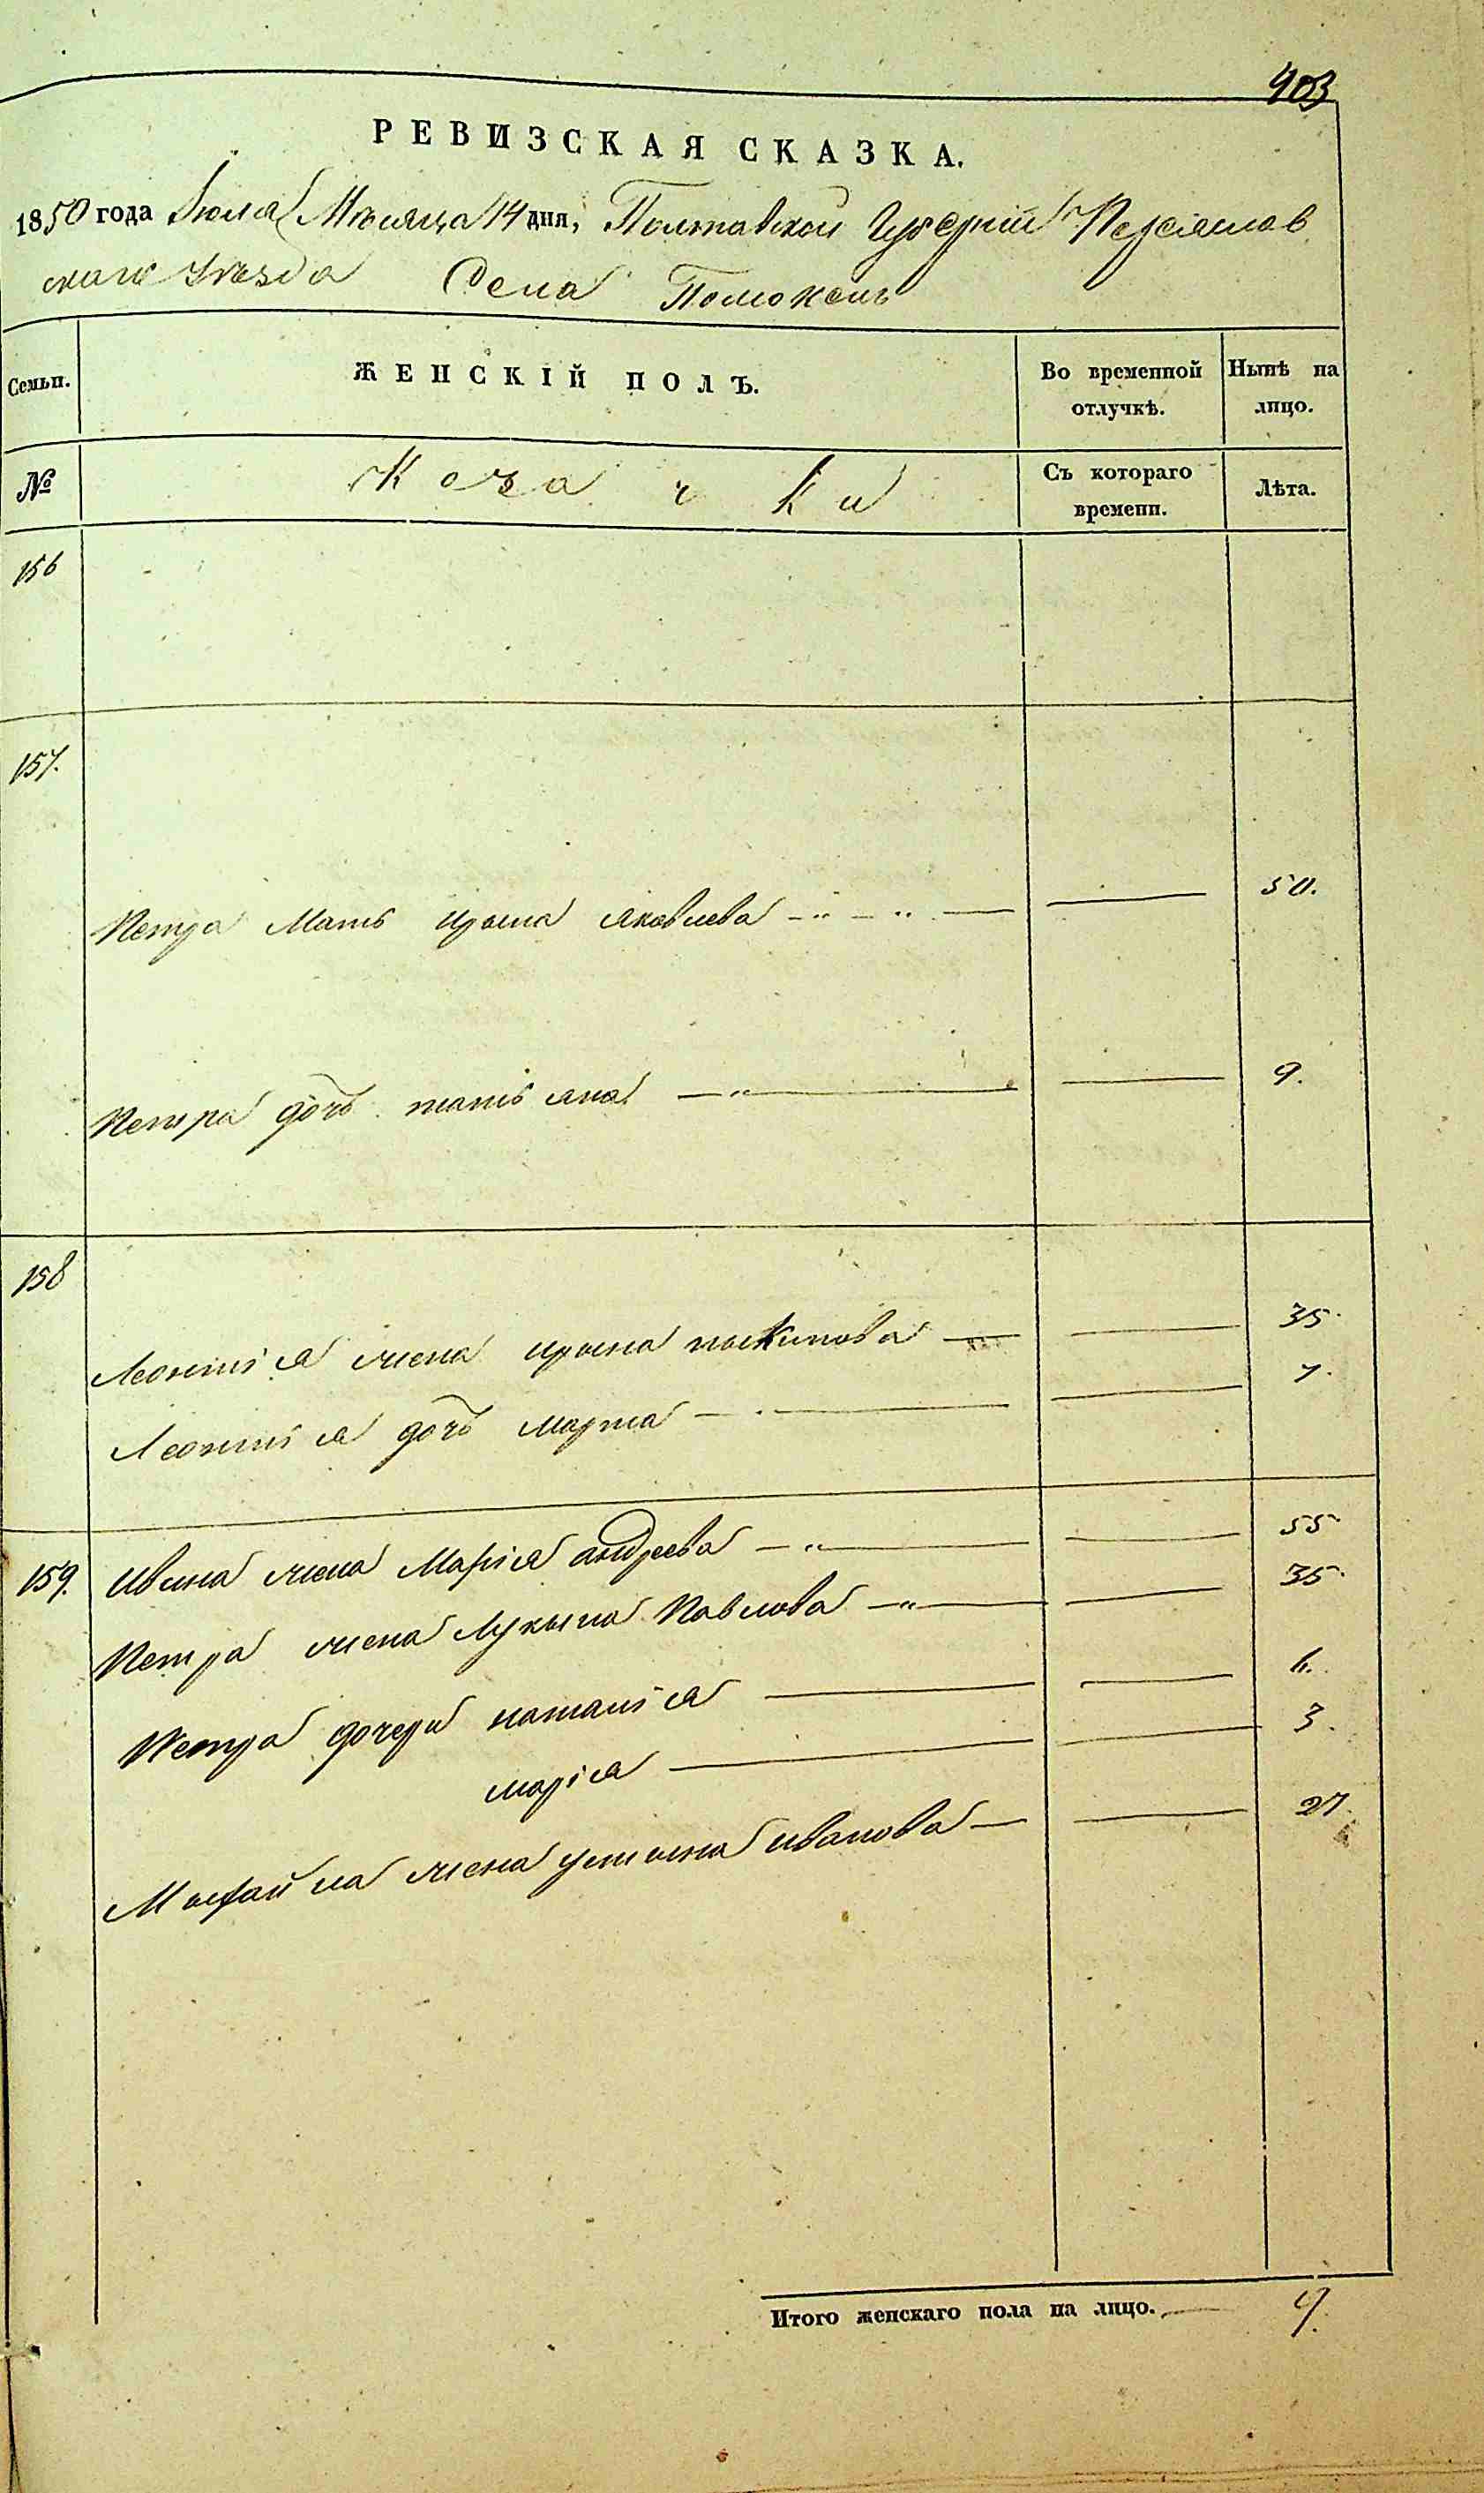 403
РЕВИЗСКАЯ СКАЗКА.
1850 года Іюля Мѣсяца 14 дня, Полтавской Губерніи Переяслав
скаго Уѣзда Села Помоклъ
Семьи. ЖЕНСКІЙ ПОЛЪ. Во временной отлучкѣ. Нынѣ на лицо.
№ Козачки Съ котораго времени. Лѣта.
156
157.
Петра Мать Ирына Яковлева — 50.
Петра дочь татіяна — 9.
158
Леонтія жена ирына — 35.
Леонтія дочь марта — 7.
159. Ивана жена Марія андреева — 55.
Петра жена Лукыя Павлова — 35.
Петра дочери наталія — 6.
марія — 3.
жена устына иванова — 27.
Итого женскаго пола на лицо. 9.